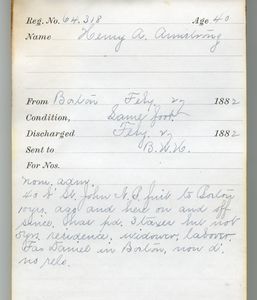 Reg. No. 64,318 Age 40
Name Henry A. Armstrong
From Boston Feby. 27 1882
Condition, Lame foot.
Discharged Feby. 27 1882
Sent to B.W.H.
For Nos.
nom. adm.
40 St. John N.B. first to Boston
10 yrs. ago and here on and off
since. Has pd. 3 taxes but not
5 yrs. residence, widower, laborer.
Fa: Daniel in Boston, now d.
no relo.